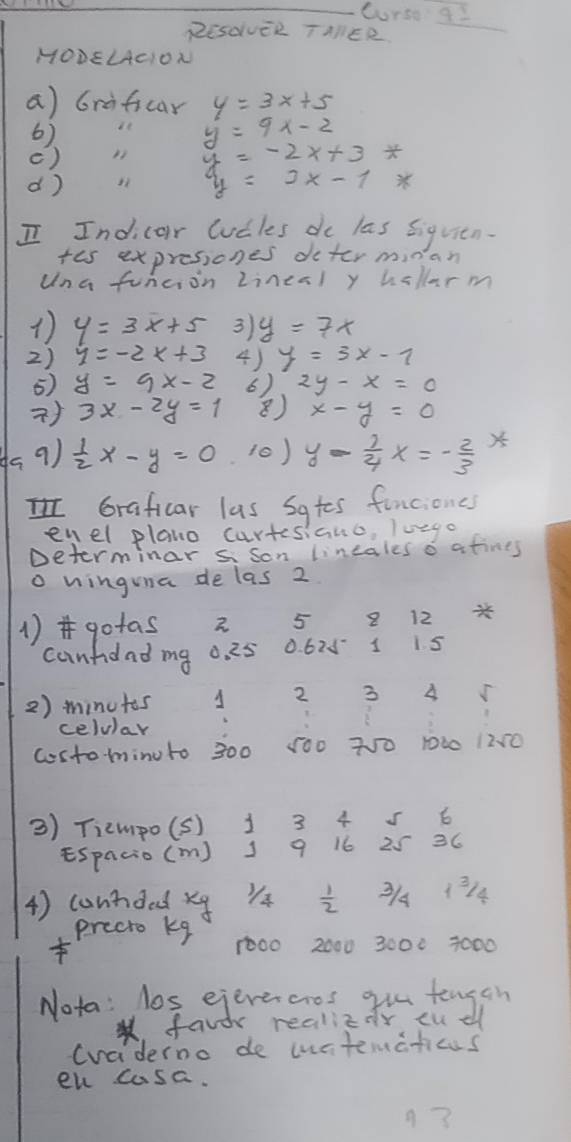 Curso: 91
RESOLVER TALLER
MODELACION
a) Graficar y = 3x+5
b) " y = 9x-2
c) " y = -2x+3 *
d) " y = 3x-1 *
II Indicar Cuáles de las siguien-
tes expresiones determinan
Una función Lineal y hallar m
1) y = 3x+5 3) y = 7x
2) y = -2x+3 4) y = 3x-1
5) y = 9x-2 6) 2y-x = 0
7) 3x-2y=1 8) x-y = 0
9) 1/2 x - y = 0 10) y - x = -2/3 *
III Graficar las Sgtes funciones
en el plano cartesiano, luego
Determinar si son lineales ó afines
o ninguna de las 2.
1) # gotas 2 5 8 12 *
Cantidad mg 0.25 0.625 1 1.5
2) minutos 1 2 3 4 5
celular
Costo minuto 300 500 750 1000 1250
3) Tiempo (s) 1 3 4 5 6
Espacio (m) 1 9 16 25 36
4) Cantidad kg 1/4 1/2 3/4 1 3/4
precio kg
$ 1000 2000 3000 7000
Nota: los ejercicios que tengan
* favor realizar en el
cuaderno de matemáticas
en casa.